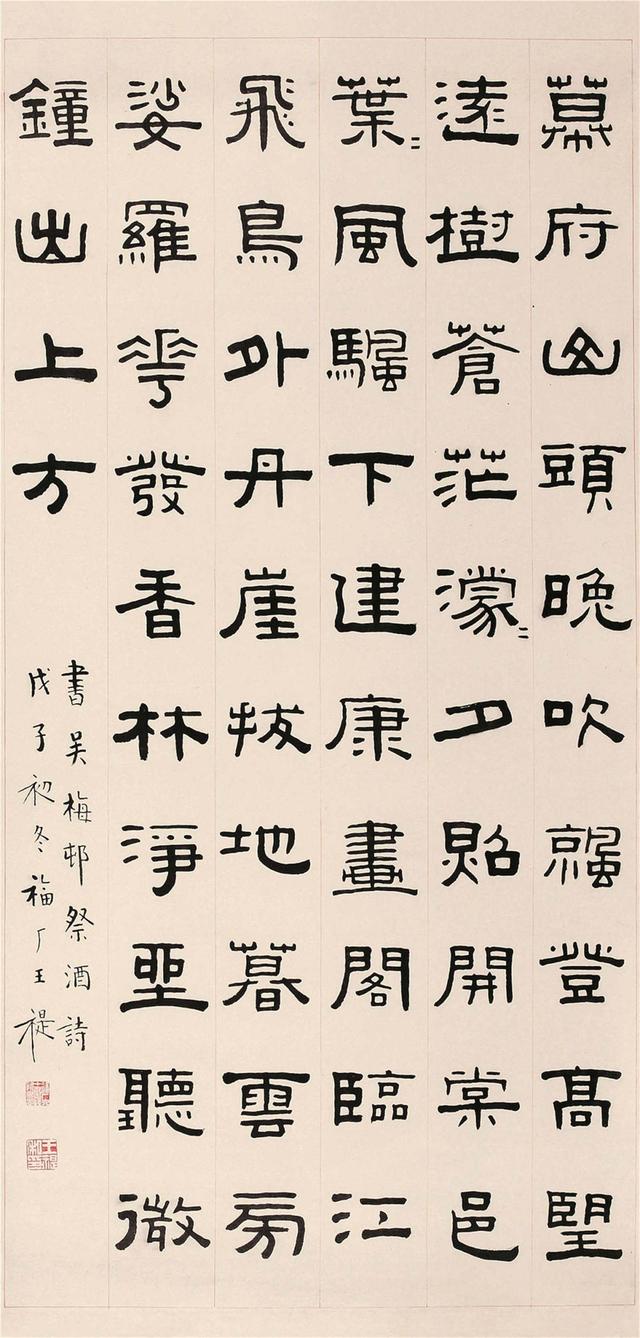 幕府山頭晚吹䬝登高望
遠樹蒼茫濛〻夕照開棠邑
葉〻風颿下建康畫閣臨江
飛鳥外丹崖拔地暮雲房
娑羅華發香林淨坐聽微
鐘出上方
書吳梅邨祭酒詩
戊子初冬福厂王禔